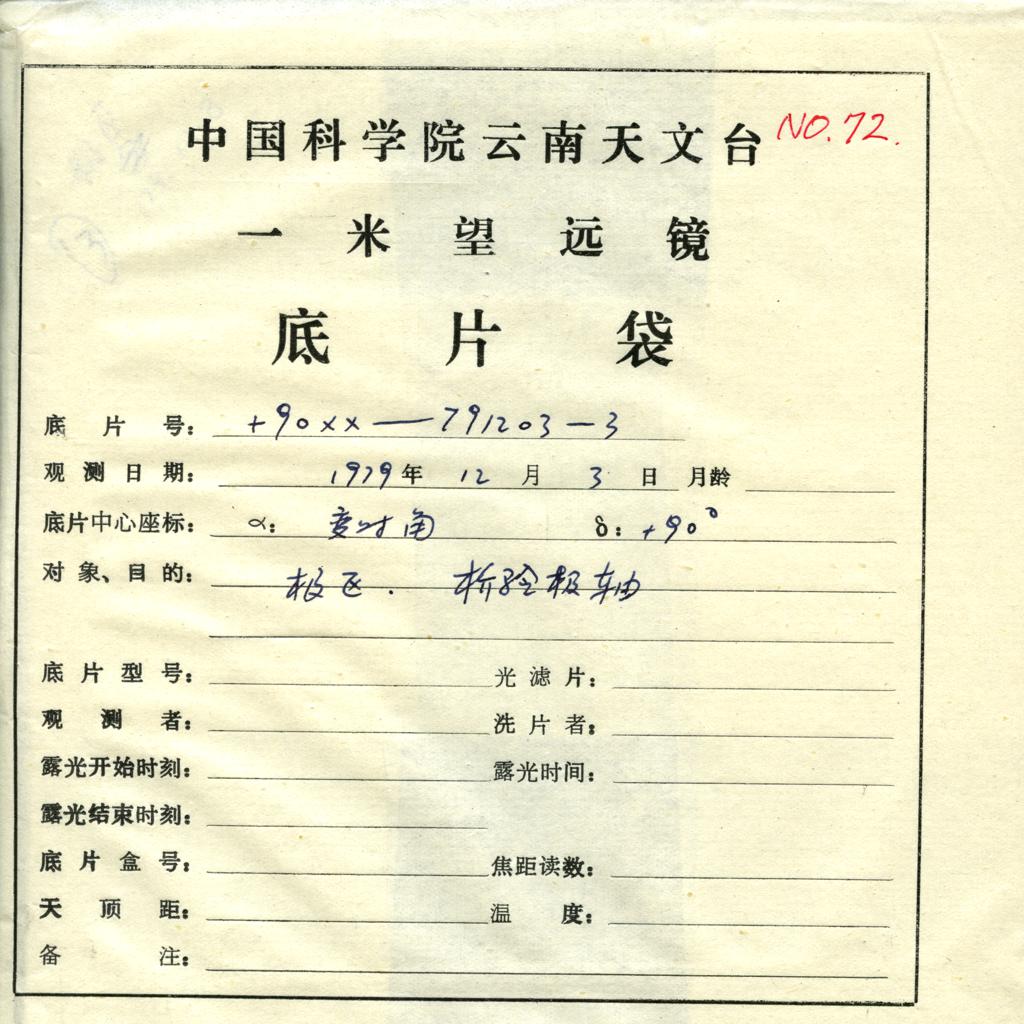 中国科学院云南天文台 NO.72.
一米望远镜
底片袋
底片号: +90xx—791203-3
观测日期: 1979年 12月 3日 月龄
底片中心座标: α: 变时角 δ: +90°
对象、目的: 极区. 检验极轴
底片型号: 光滤片:
观测者: 洗片者:
露光开始时刻: 露光时间:
露光结束时刻:
底片盒号: 焦距读数:
天顶距: 温度:
备注: